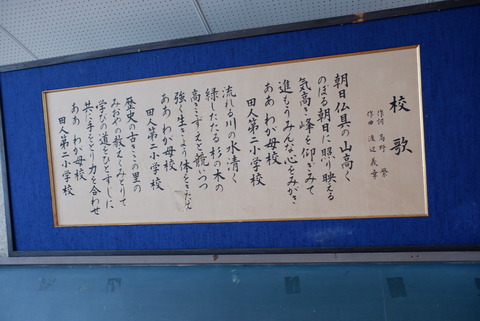 校歌
作詞 高野 榮
作曲 渡辺義幸
朝日仏具の山高く
のぼる朝日に照り映える
気高き峰を仰ぎみて
進もうみんな心をみがき
ああ わが母校
田人第二小学校
流れる川の水清く
緑したたる杉の木の
高きこずえと競いつつ
強く生きよう体をきたえ
ああ わが母校
田人第二小学校
歴史の古きこの里の
みおやの教えくみとりて
学びの道をひとすじに
共に手をとり力を合わせ
ああ わが母校
田人第二小学校